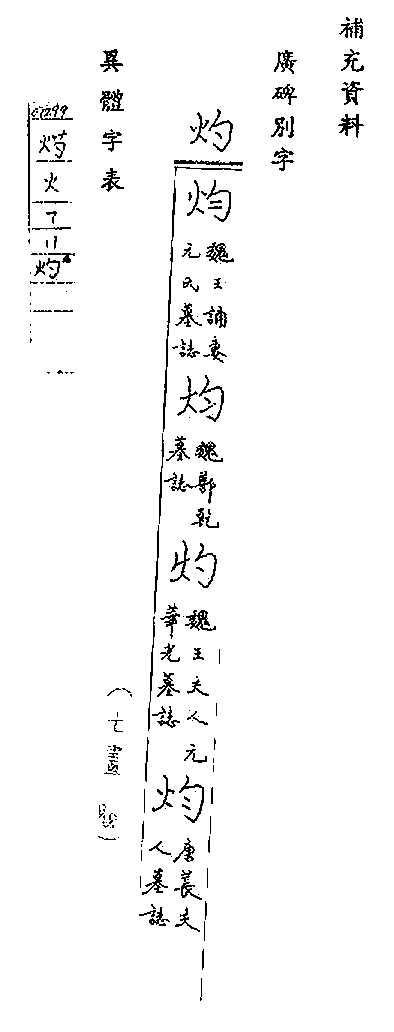 補充資料
廣碑別字
灼
灼
魏王誦妻
元氏墓誌
灼
魏鄭乾
墓誌
灼
魏王夫人元
華光墓誌
灼
唐姜夫
人墓誌
異體字表
火
7
11
灼